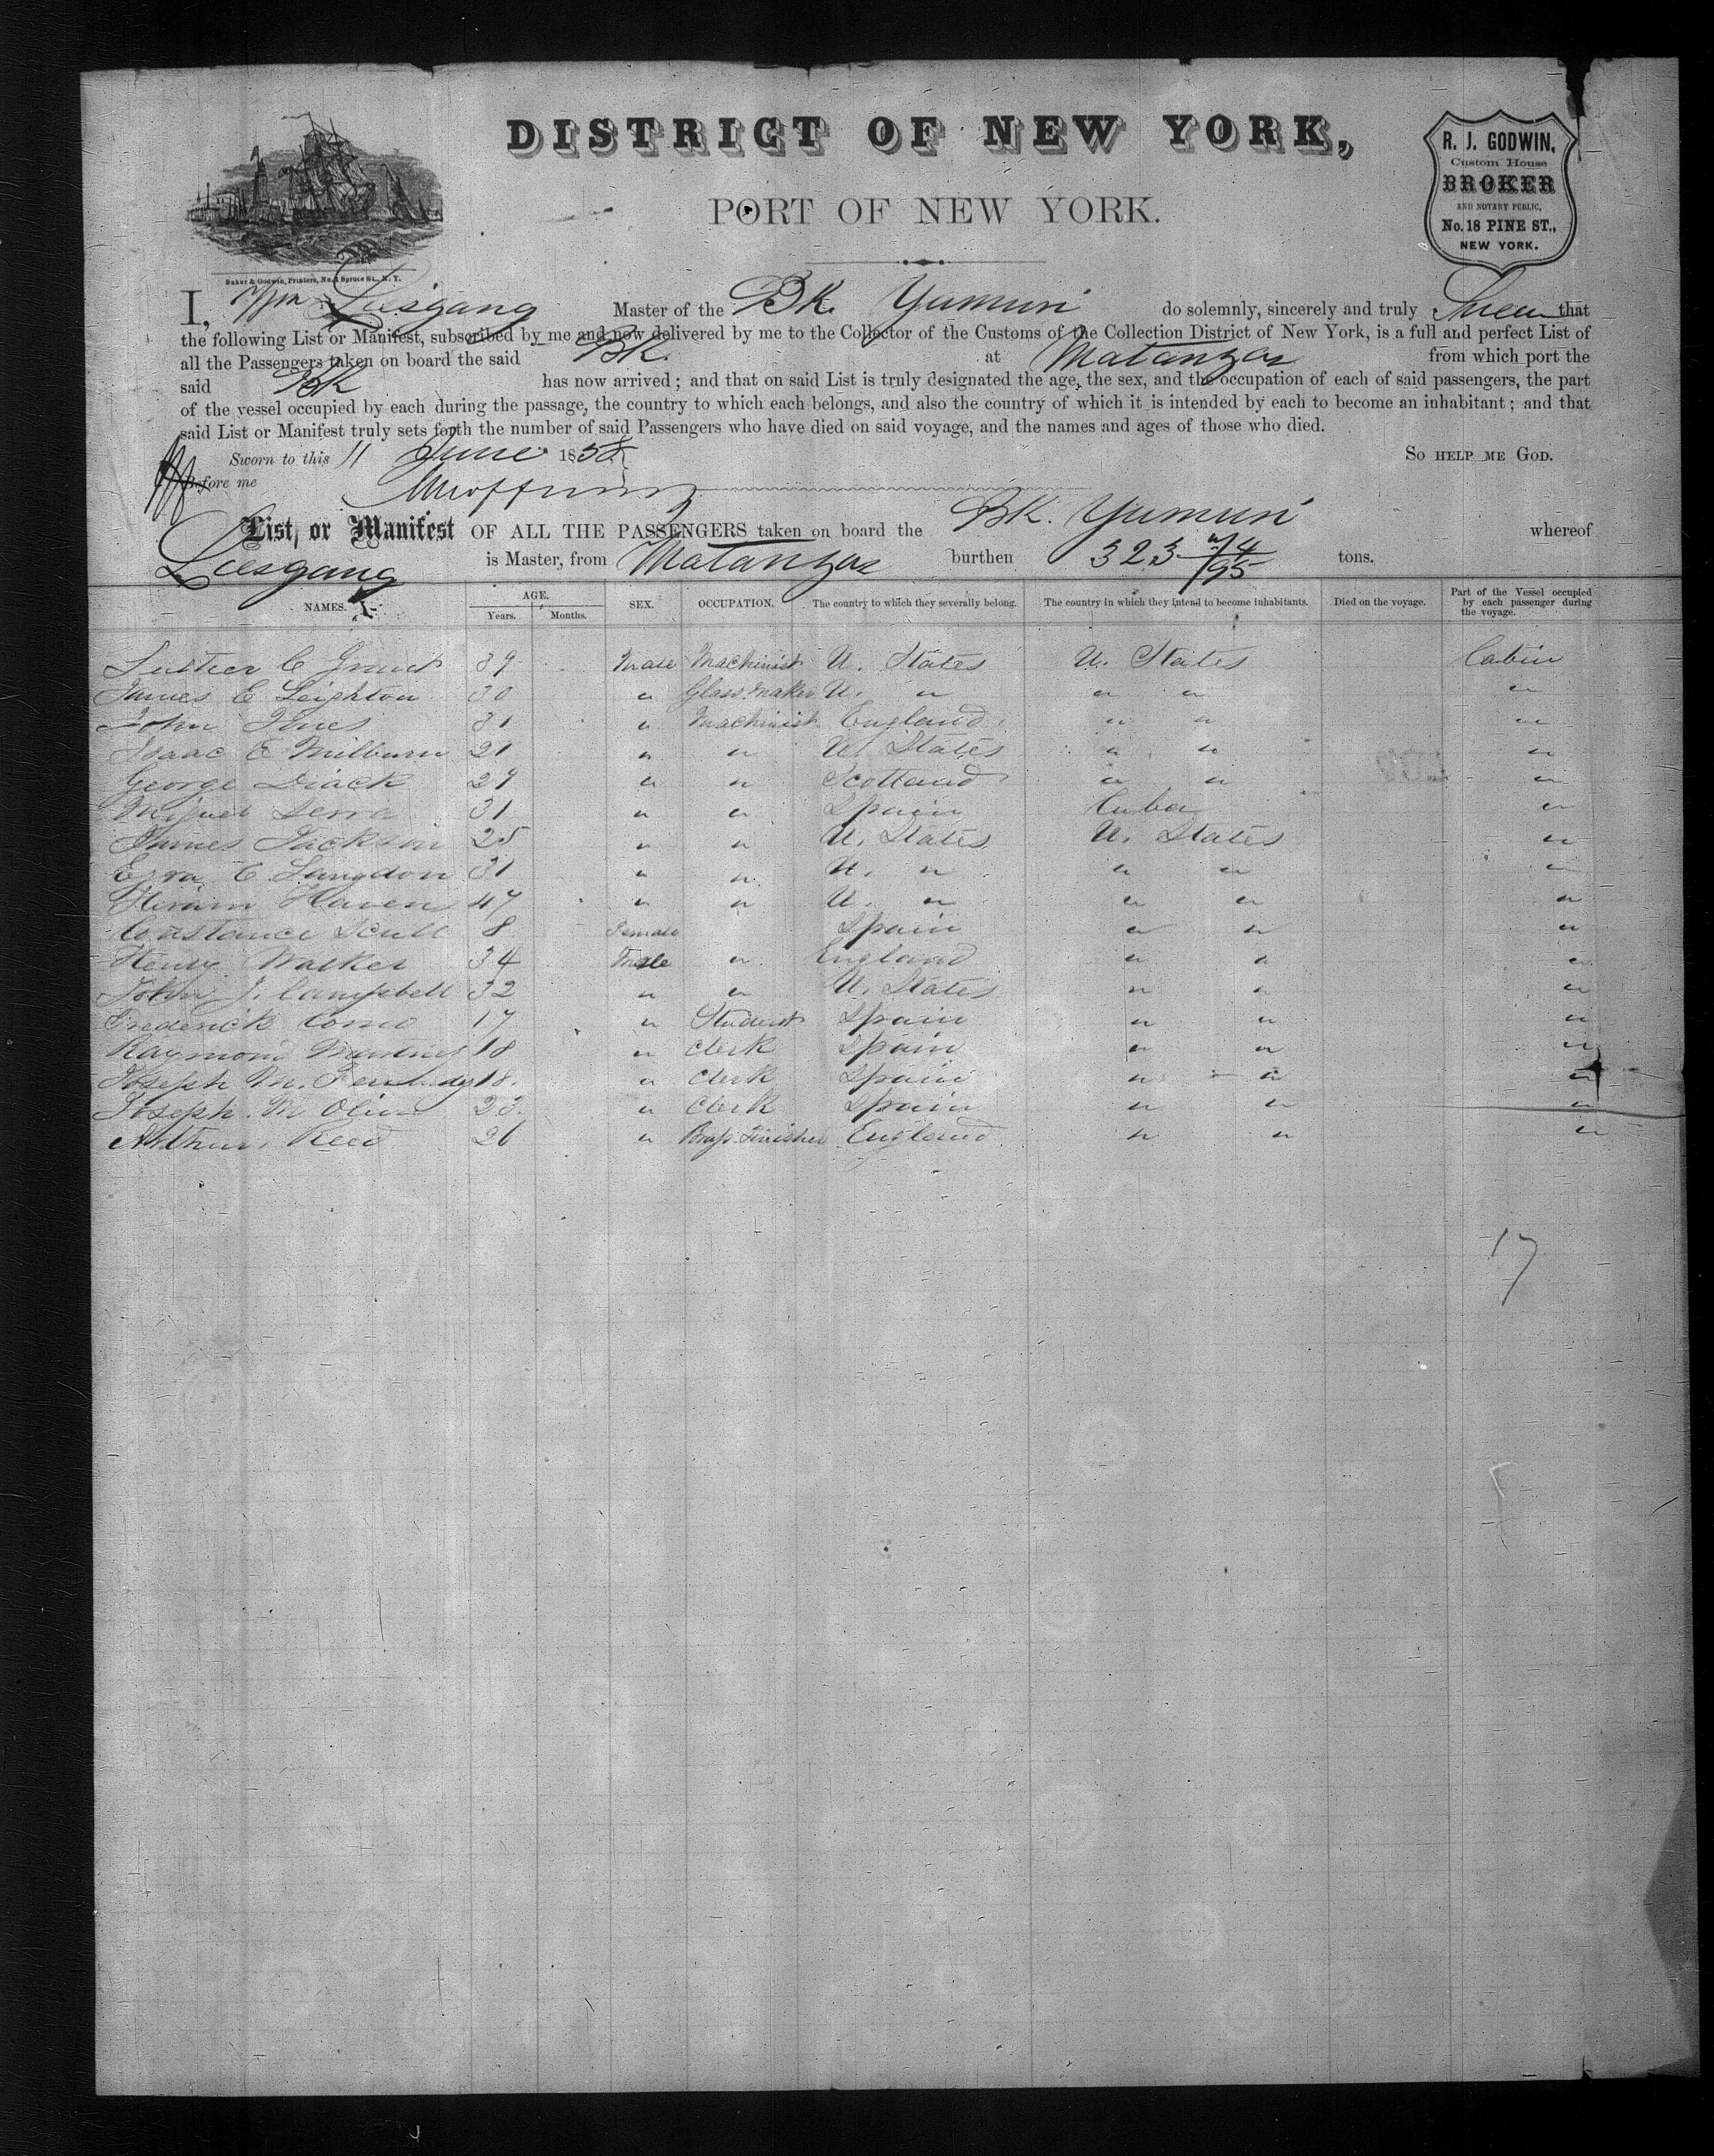 DISTRICT OF NEW YORK,
PORT OF NEW YORK.
R. J. GODWIN,
Custom House
BROKER
AND NOTARY PUBLIC,
No. 18 PINE ST.,
NEW YORK.
Baker & Godwin, Printers, No. 1 Spruce St., N. Y.
I, Wm Liesgang Master of the BK. Yumuri do solemnly, sincerely and truly Swear that
the following List or Manifest, subscribed by me and now delivered by me to the Collector of the Customs of the Collection District of New York, is a full and perfect List of
all the Passengers taken on board the said BK. at Matanzas from which port the
said BK has now arrived; and that on said List is truly designated the age, the sex, and the occupation of each of said passengers, the part
of the vessel occupied by each during the passage, the country to which each belongs, and also the country of which it is intended by each to become an inhabitant; and that
said List or Manifest truly sets forth the number of said Passengers who have died on said voyage, and the names and ages of those who died.
Sworn to this 11 June 1858 SO HELP ME GOD.
Before me
List, or Manifest OF ALL THE PASSENGERS taken on board the BK. Yumuri whereof
Liesgang is Master, from Matanzas burthen 323 14/95 tons.
NAMES. AGE. Years. Months. SEX. OCCUPATION. The country to which they severally belong. The country in which they intend to become inhabitants. Died on the voyage. Part of the Vessel occupied by each passenger during the voyage.
Luther C Grant 39 Male Machinist U. States U. States Cabin
James E Leighton 30 " Glass Maker U. " " " "
John Jones 31 " Machinist England " " "
Isaac E Milburn 21 " " U. States " " "
George Diack 29 " " Scotland " " "
Miguel Serra 31 " " Spain Cuba "
James Jackson 25 " " U. States U. States "
Ezra C. Langdon 31 " " U. " " " "
Hiram Haven 47 " " U. " " " "
Constance Scull 8 Female Spain " " "
Henry Walker 34 Male " England " " "
John J. Campbell 32 " " U. States " " "
Frederick 17 " Student Spain " " "
Raymond 18 " Clerk Spain " " "
Joseph M. 18. " Clerk Spain " " "
Joseph. M Oliva 23. " Clerk Spain " " "
Arthur Reed 26 " Brass Finisher England " " "
17